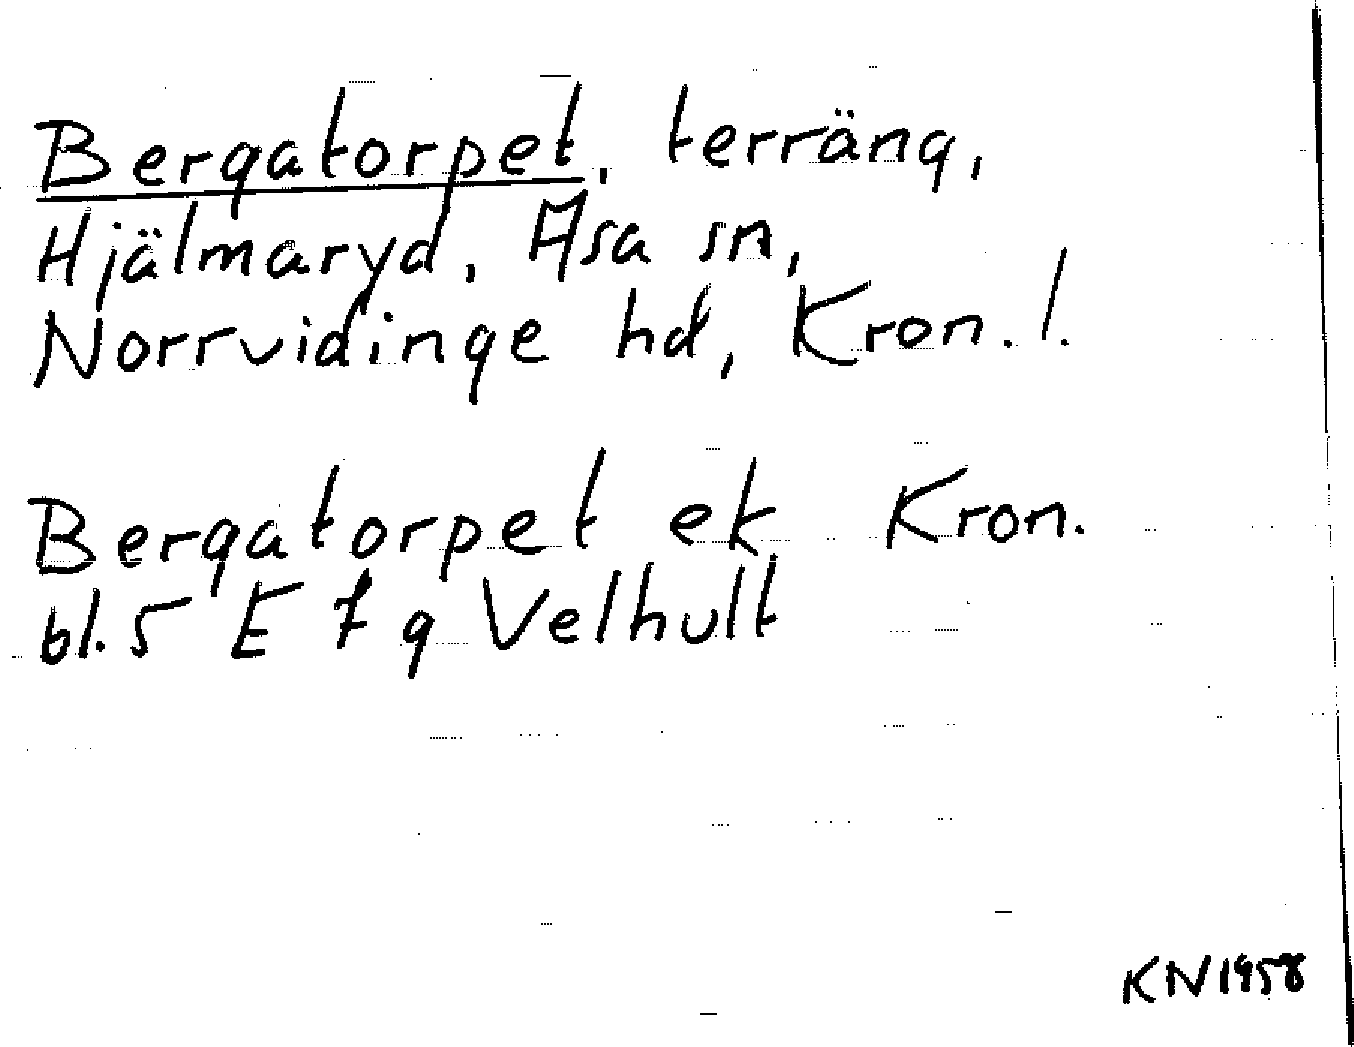 Bergatorpet, terräng,
Hjälmaryd, Asa sn,
Norrvidinge hd, Kron. l.
Bergatorpet ek Kron.
bl. 5 E 7 g Velhult
KN 1958